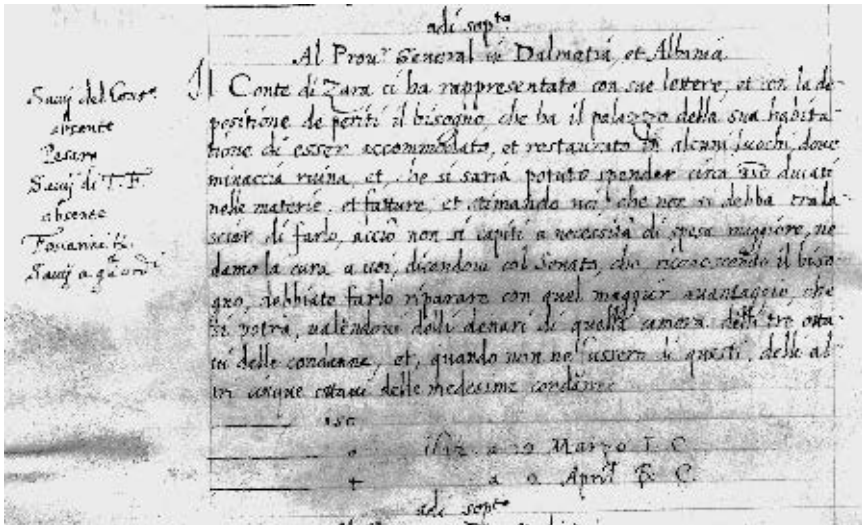 adi sopta
Al Prour General in Dalmatia, et Albania
Il Conte di Zara ci ha rappresentato con sue lettere, et con la de
Sauij del Conso
positione de periti il bisogno, che ha il palazzo della sua habita
absente
tione di esser accommodato, et restaurato in alcuni luochi, doue
Pesaro
minaccia ruina, et, che si saria potuto spender circa ducati
Sauij di T. F.
nelle materie, et fatture, et stimando noi, che non si debba trala
absente
sciar di farlo, acciò non si capiti a necessità di spesa maggiore, ne
Foscarini
damo la cura a uoi, dicendoui col Senato, che riconoscendo il biso
Sauij a
gno, debbiate farlo riparare con quel maggior auantaggio, che
si potrà, ualendoui delli denari di quella camera delli tre otta
ui delle condanne, et, quando non ne fussero di questi, delli al
tri cinque ottaui delle medesime condanne
150
o a 29 Marzo I. C.
+ a 2 April P. C.
adi sopto